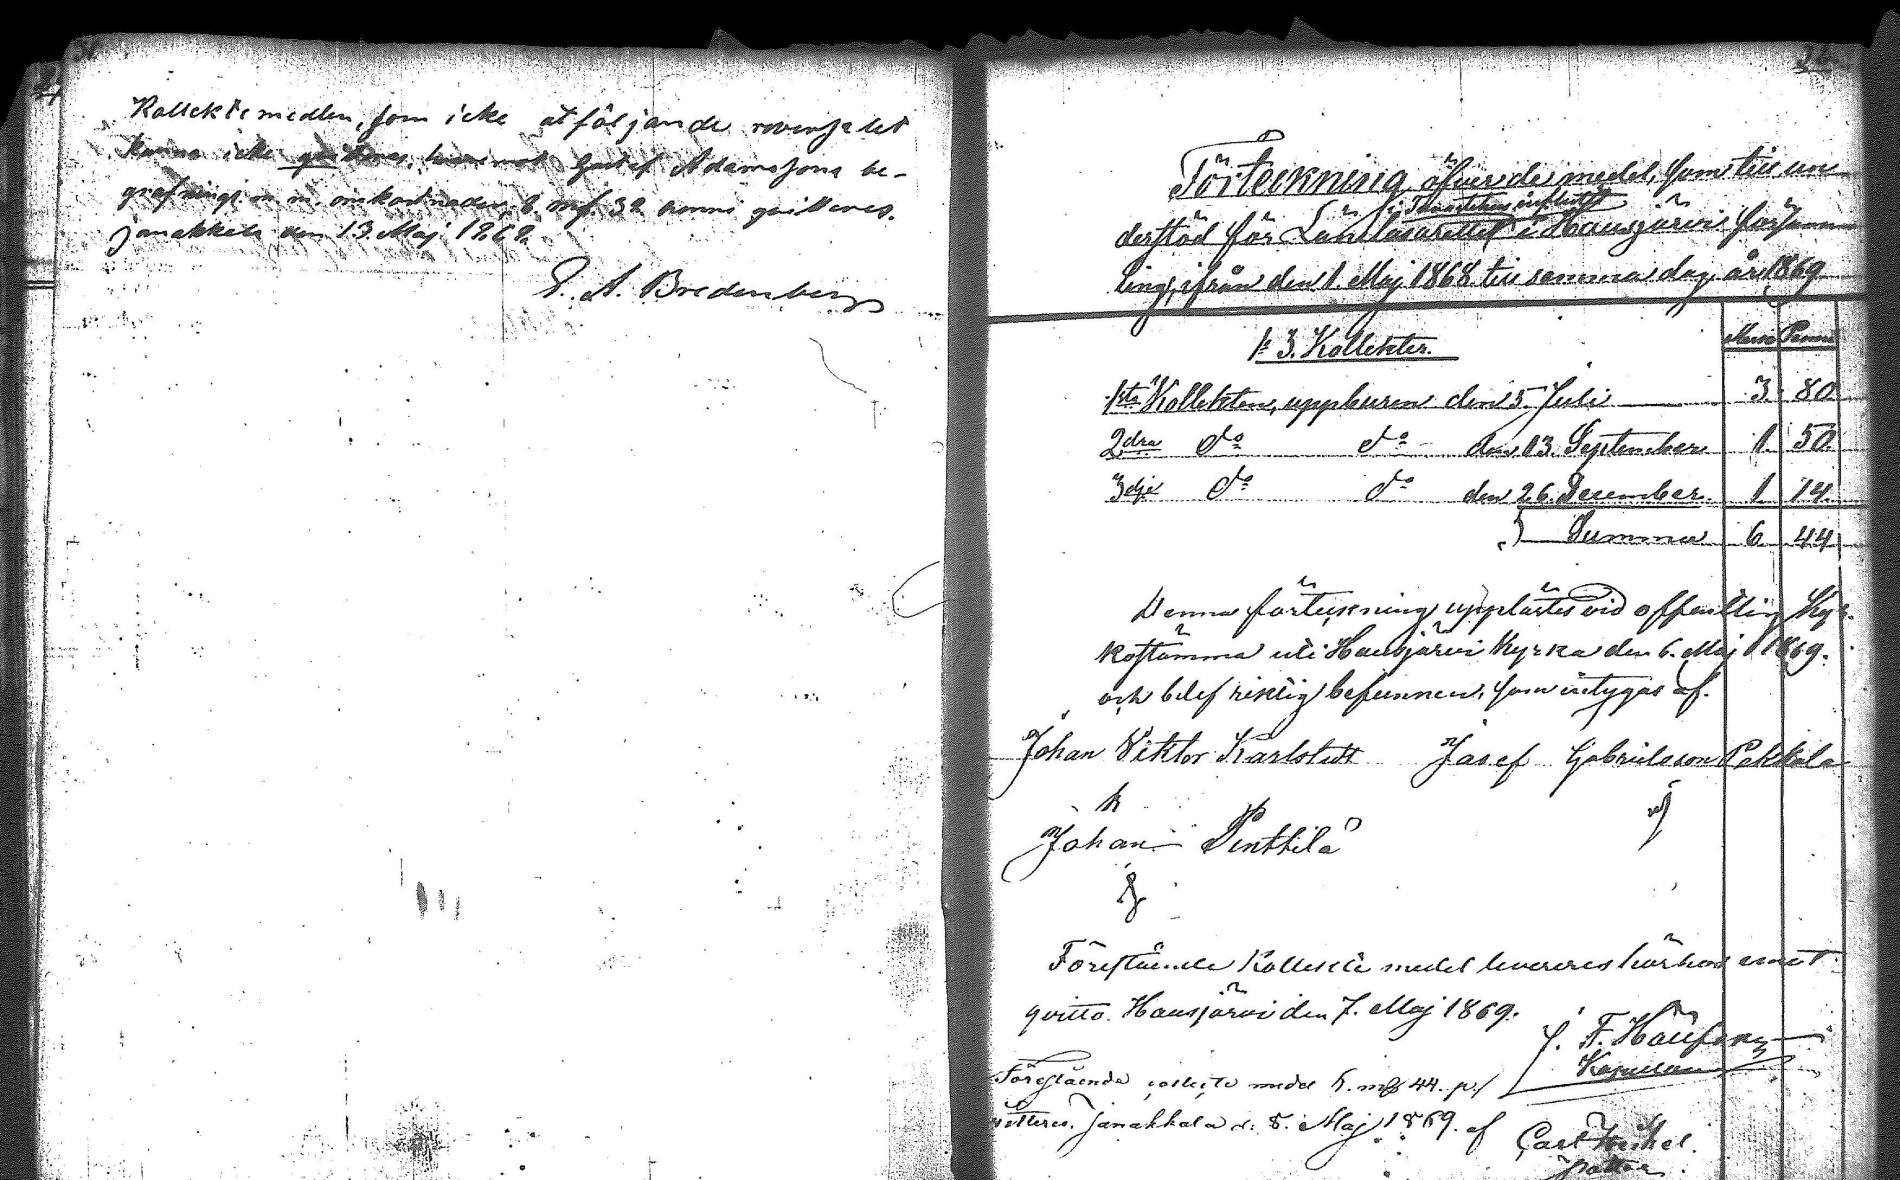 Kollektemedlen, som icke åtföljande reversalet
kunna icke quitteras, hvaremot Gustaf Adamssons be-
grafnings m. m. omkostnader, 8. mf. 32 penni quitteras.
Janakkala den 13. Maj 1868.
E. A. Bredenberg
Förteckning öfver de medel, som till un-
i Tavastehus influtit
derstöd för Länlasarettet i Hausjärvi försam-
ling, ifrån den 1. Maj 1868 till samma dag år 1869.
Mark Penni
3. Kollekter.
1sta Kollekten, uppburen den 5. Juli 3. 80
2dra do do den 13. September 1. 50.
3dje do do den 26. December. 1. 14.
Summa 6. 44
Denna förteckning upplästes vid offentlig Kyr-
kostämma uti Hausjärvi Kyrka den 6. Maj 1869.
och blef riktig befunnen, som intygas af.
Johan Viktor Karlstedt Josef Gabrielsson Pekkala
Johan Penttilä
Förestående Kollekte medel levereras härhos emot
qvitto. Hausjärvi den 7. Maj 1869.
J. F.
Kapellan
Förestående collecte medel 6. mk 44. p.
qvitteras. Janakkala d. 8. Maj 1869. af
Carl